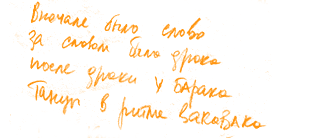 Вначале было слово
за словом была драка
после драки у барака
Танцы в ритме вакавака